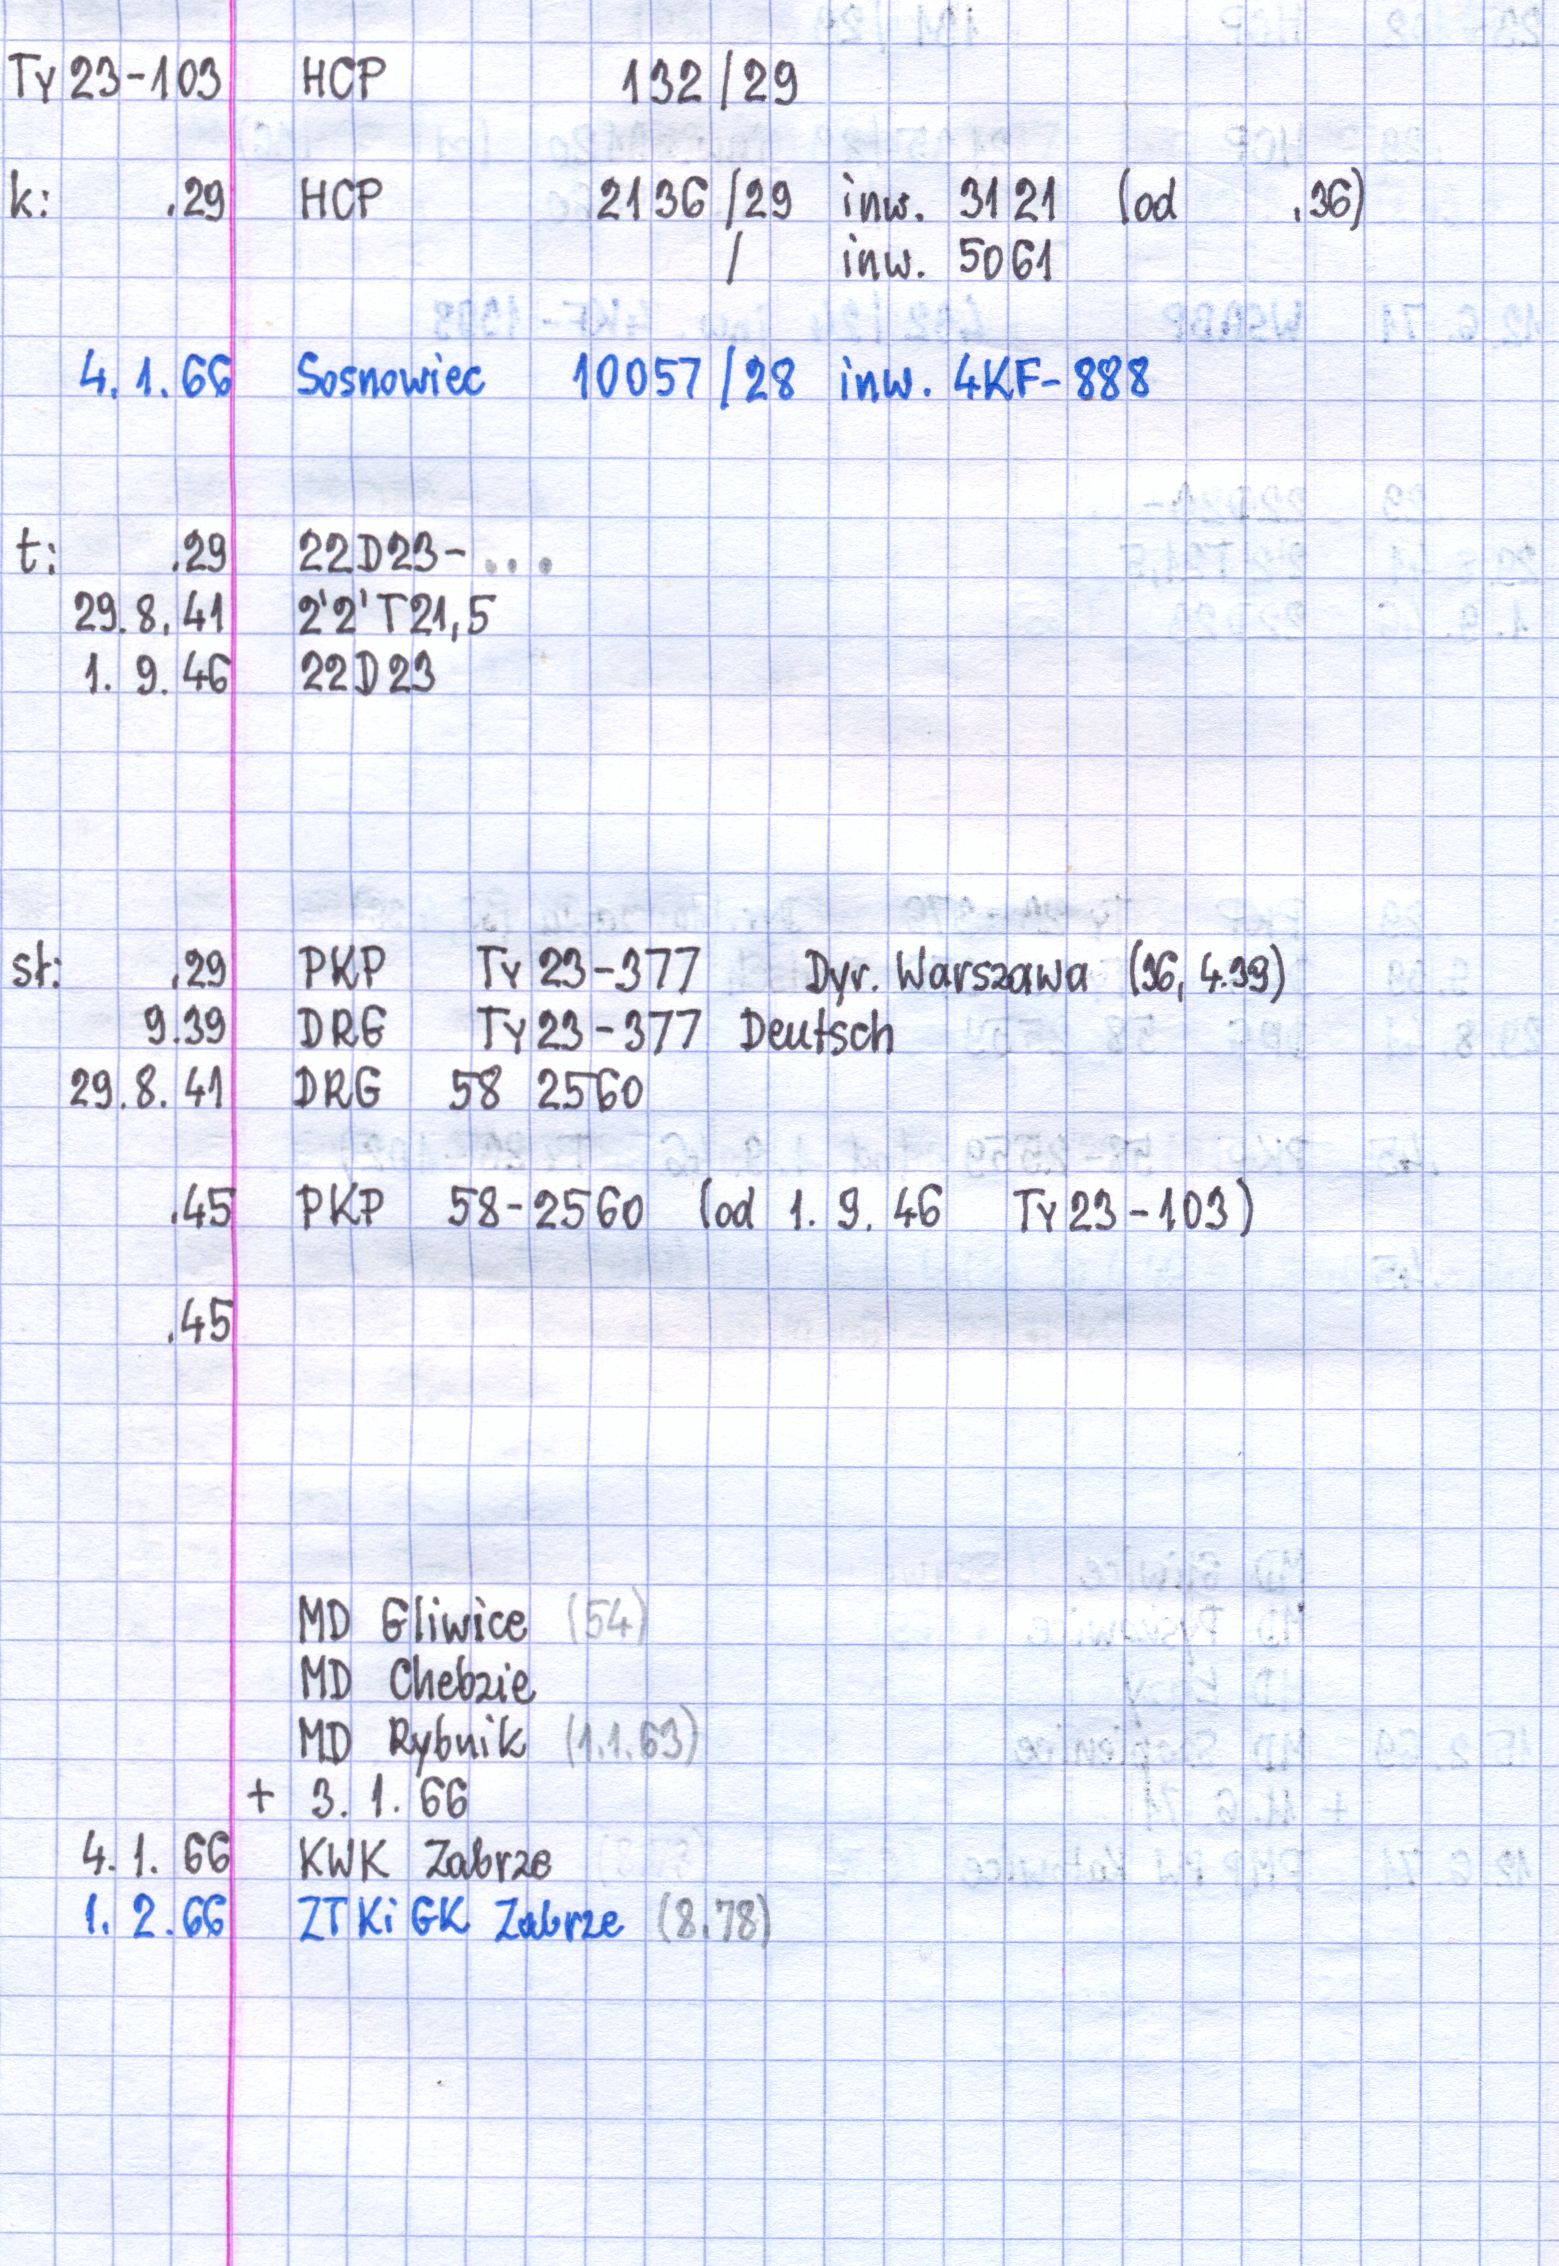 Ty 23-103 HCP 132/29
k: .29 HCP 2136/29 inw. 3121 (od .36)
/ inw. 5061
4.1.66 Sosnowiec 10057/28 inw. 4KF-888
t: .29 22D23-...
29.8.41 2'2'T21,5
1.9.46 22D23
sł: .29 PKP Ty 23-377 Dyr. Warszawa (36, 4.39)
9.39 DRG Ty 23-377 Deutsch
29.8.41 DRG 58 2560
.45 PKP 58-2560 (od 1.9.46 Ty 23-103)
.45
MD Gliwice (54)
MD Chebzie
MD Rybnik (1.1.63)
+ 3.1.66
4.1.66 KWK Zabrze
1.2.66 ZTKiGK Zabrze (8.78)